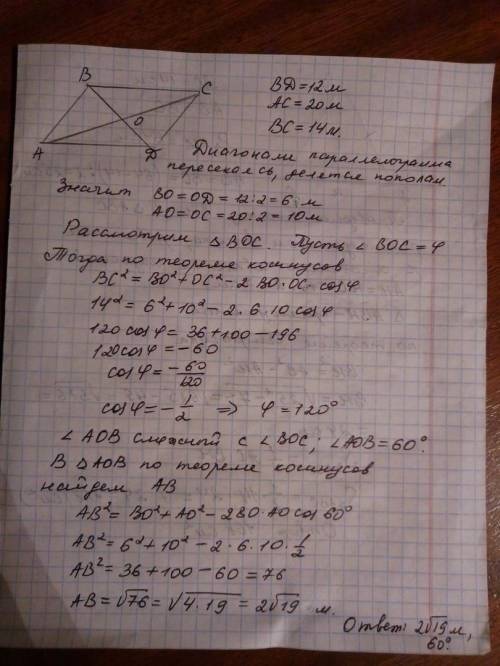 B
C
O
A
D
BD=12м
AC=20м
BC=14м.
Диагонали параллелограмма
пересекаясь, делятся пополам
Значит BO=OD=12:2=6 м
AO=OC=20:2=10м
Рассмотрим △BOC. Пусть ∠BOC=φ
Тогда по теореме косинусов
BC²=BO²+OC²-2BO·OC·cosφ
14²=6²+10²-2·6·10cosφ
120cosφ=36+100-196
120cosφ=-60
cosφ=-60/120
cosφ=-1/2 ⇒ φ=120°
∠AOB смежный с ∠BOC; ∠AOB=60°.
В △AOB по теореме косинусов
найдем AB
AB²=BO²+AO²-2BO·AO cos60°
AB²=6²+10²-2·6·10·1/2
AB²=36+100-60=76
AB=√76=√4·19=2√19 м.
Ответ: 2√19м,
60°.